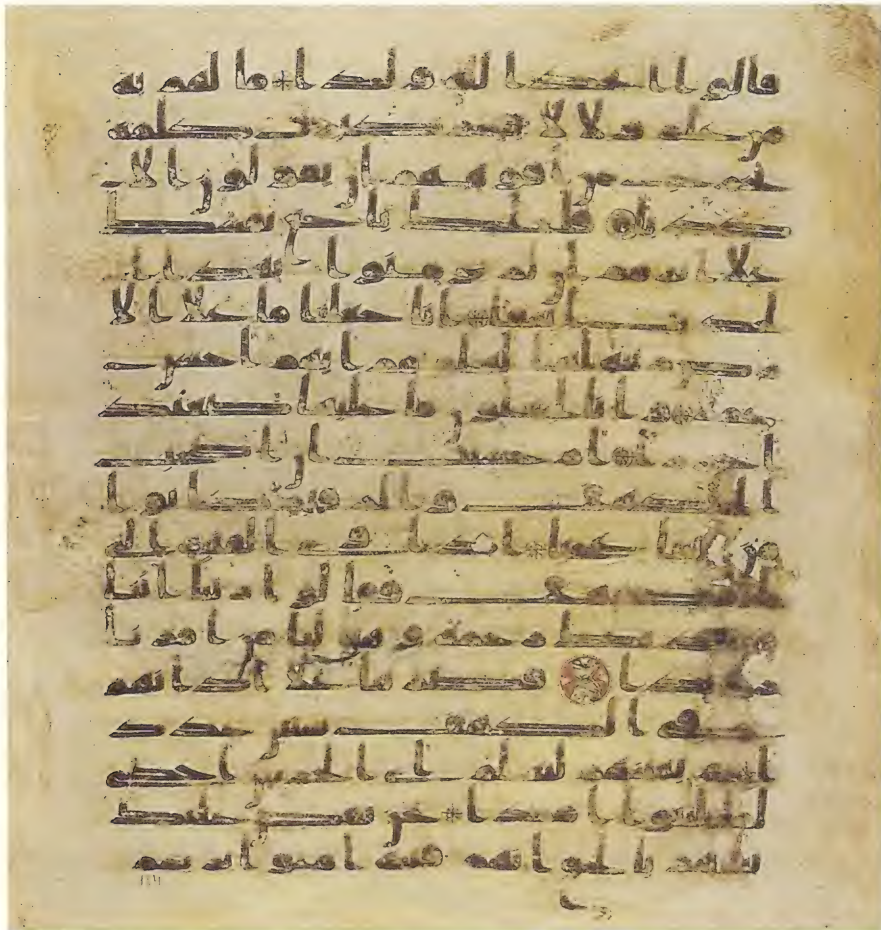 قالوا اتخذ الله ولدا * ما لهم به
من علم ولا لابائهم كبرت كلمة
تخرج من افوههم ان يقولون الا
كذبا فلعلك باخع نفسك
علا اثرهم ان لم يومنوا بهذا ا
لحديث اسفا * انا جعلنا ما علا الا
رض زينة لها لنبلوهم ايهم احسن
عملا * وانا لجعلون ما عليها صعيد
ا جرزا * ام حسبت ان اصحب
الكهف والرقيم كانوا
من ايتنا عجبا * اذ اوى الفتية الى
الكهف فقالوا ربنا اتنا
من لدنك رحمة وهيى لنا من امرنا
رشدا فضربنا علا اذانهم
في الكهف سنين عدد
ا ثم بعثنهم لنعلم اي الحزبين احصى
لما لبثوا امدا * نحن نقص عليك
نباهم بالحق انهم فتية امنوا بربهم